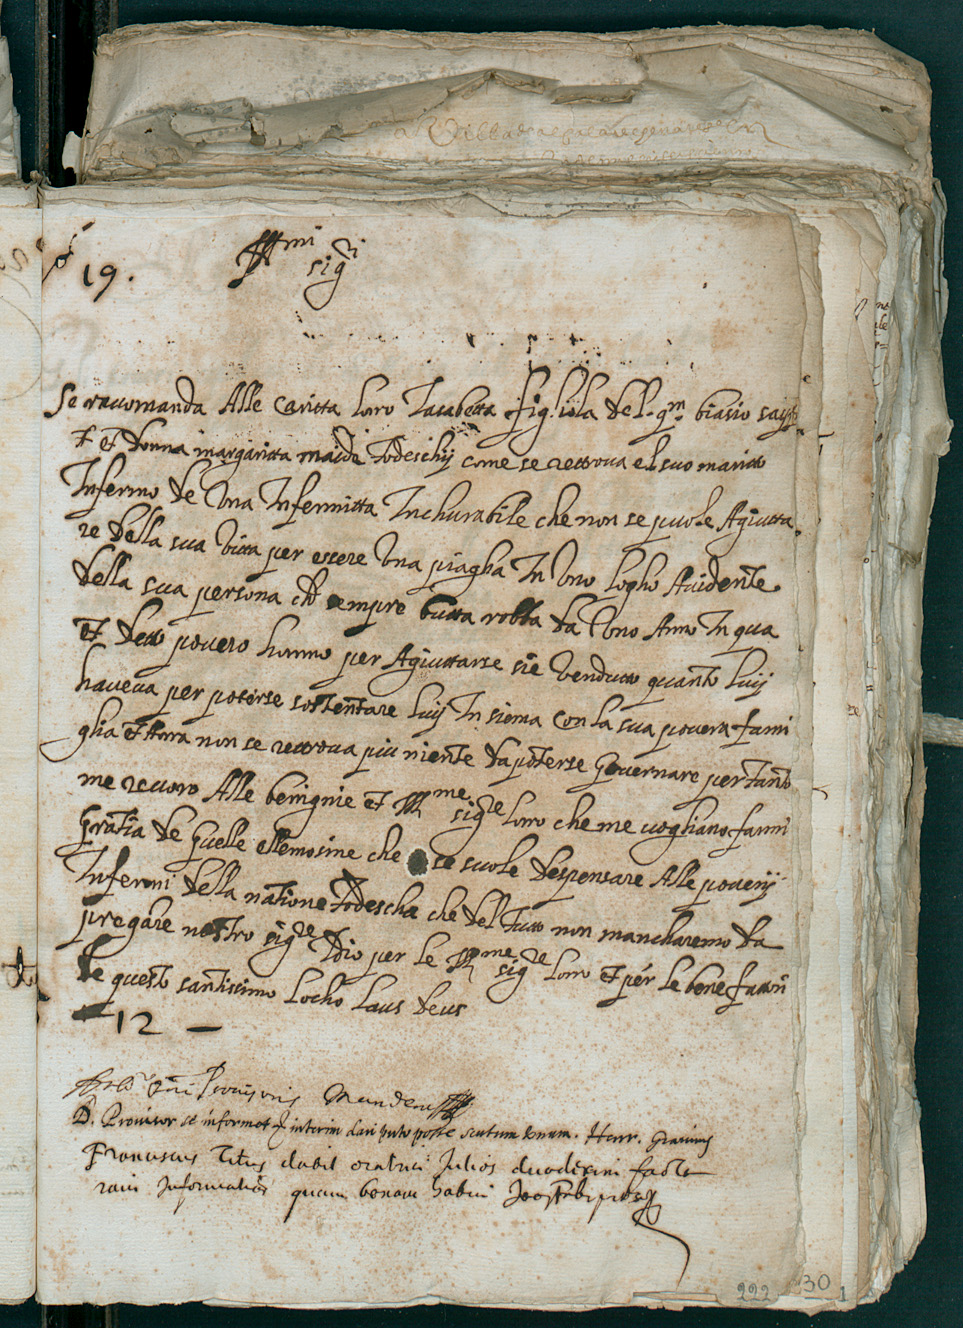 19.
Illmi
sigri
Se raccomanda Alle Caritta loro Isabetta figliola del qm biasio
et donna margaritta todeschij come se rettrova el suo maritto
Infermo de Una Infermitta Inchurabile che non se puole Agiutta
re della sua Vitta per essere Una piagha In Uno logho Avidente
della sua persona che sempre butta robba da Uno Anno In qua
et detto povero homo per Agiuttarse sie Venduto quanto luij
haveva per poterse sostentare luij Insiema Con la sua povera fami
glia et hora non se rettrova piu niente da poterse Governare per tanto
me recoro Alle benignie et Illme sigre loro che me vogliano farmi
gratia de quelle ellemosine che se suole despensare Alle poverij
Infermi della natione todescha che del tutto non mancharemo da
pregare nostro sigre Idio per le Illme sigre loro et per le bene fattori
de questo santissimo locho laus deus
12
D. Provisor se informet et interim dari puto posse scutum unum. Henr. Gravius
Franciscus Titus dabit oratrici Julios duodecim facta
informatione quam bonam habui
222
30
1